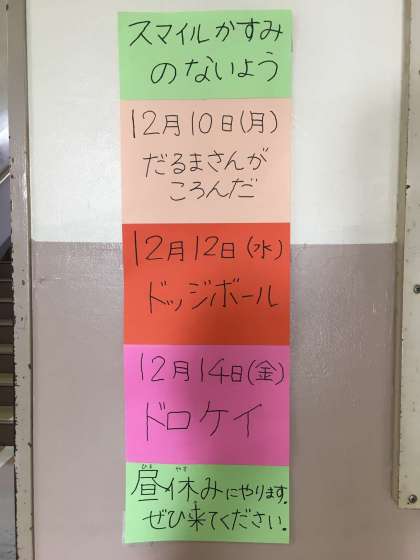 スマイルかすみ
のないよう
12月10日(月)
だるまさんが
ころんだ
12月12日(水)
ドッジボール
12月14日(金)
ドロケイ
ひる やす
昼休みにやります。
ぜひ来てください。